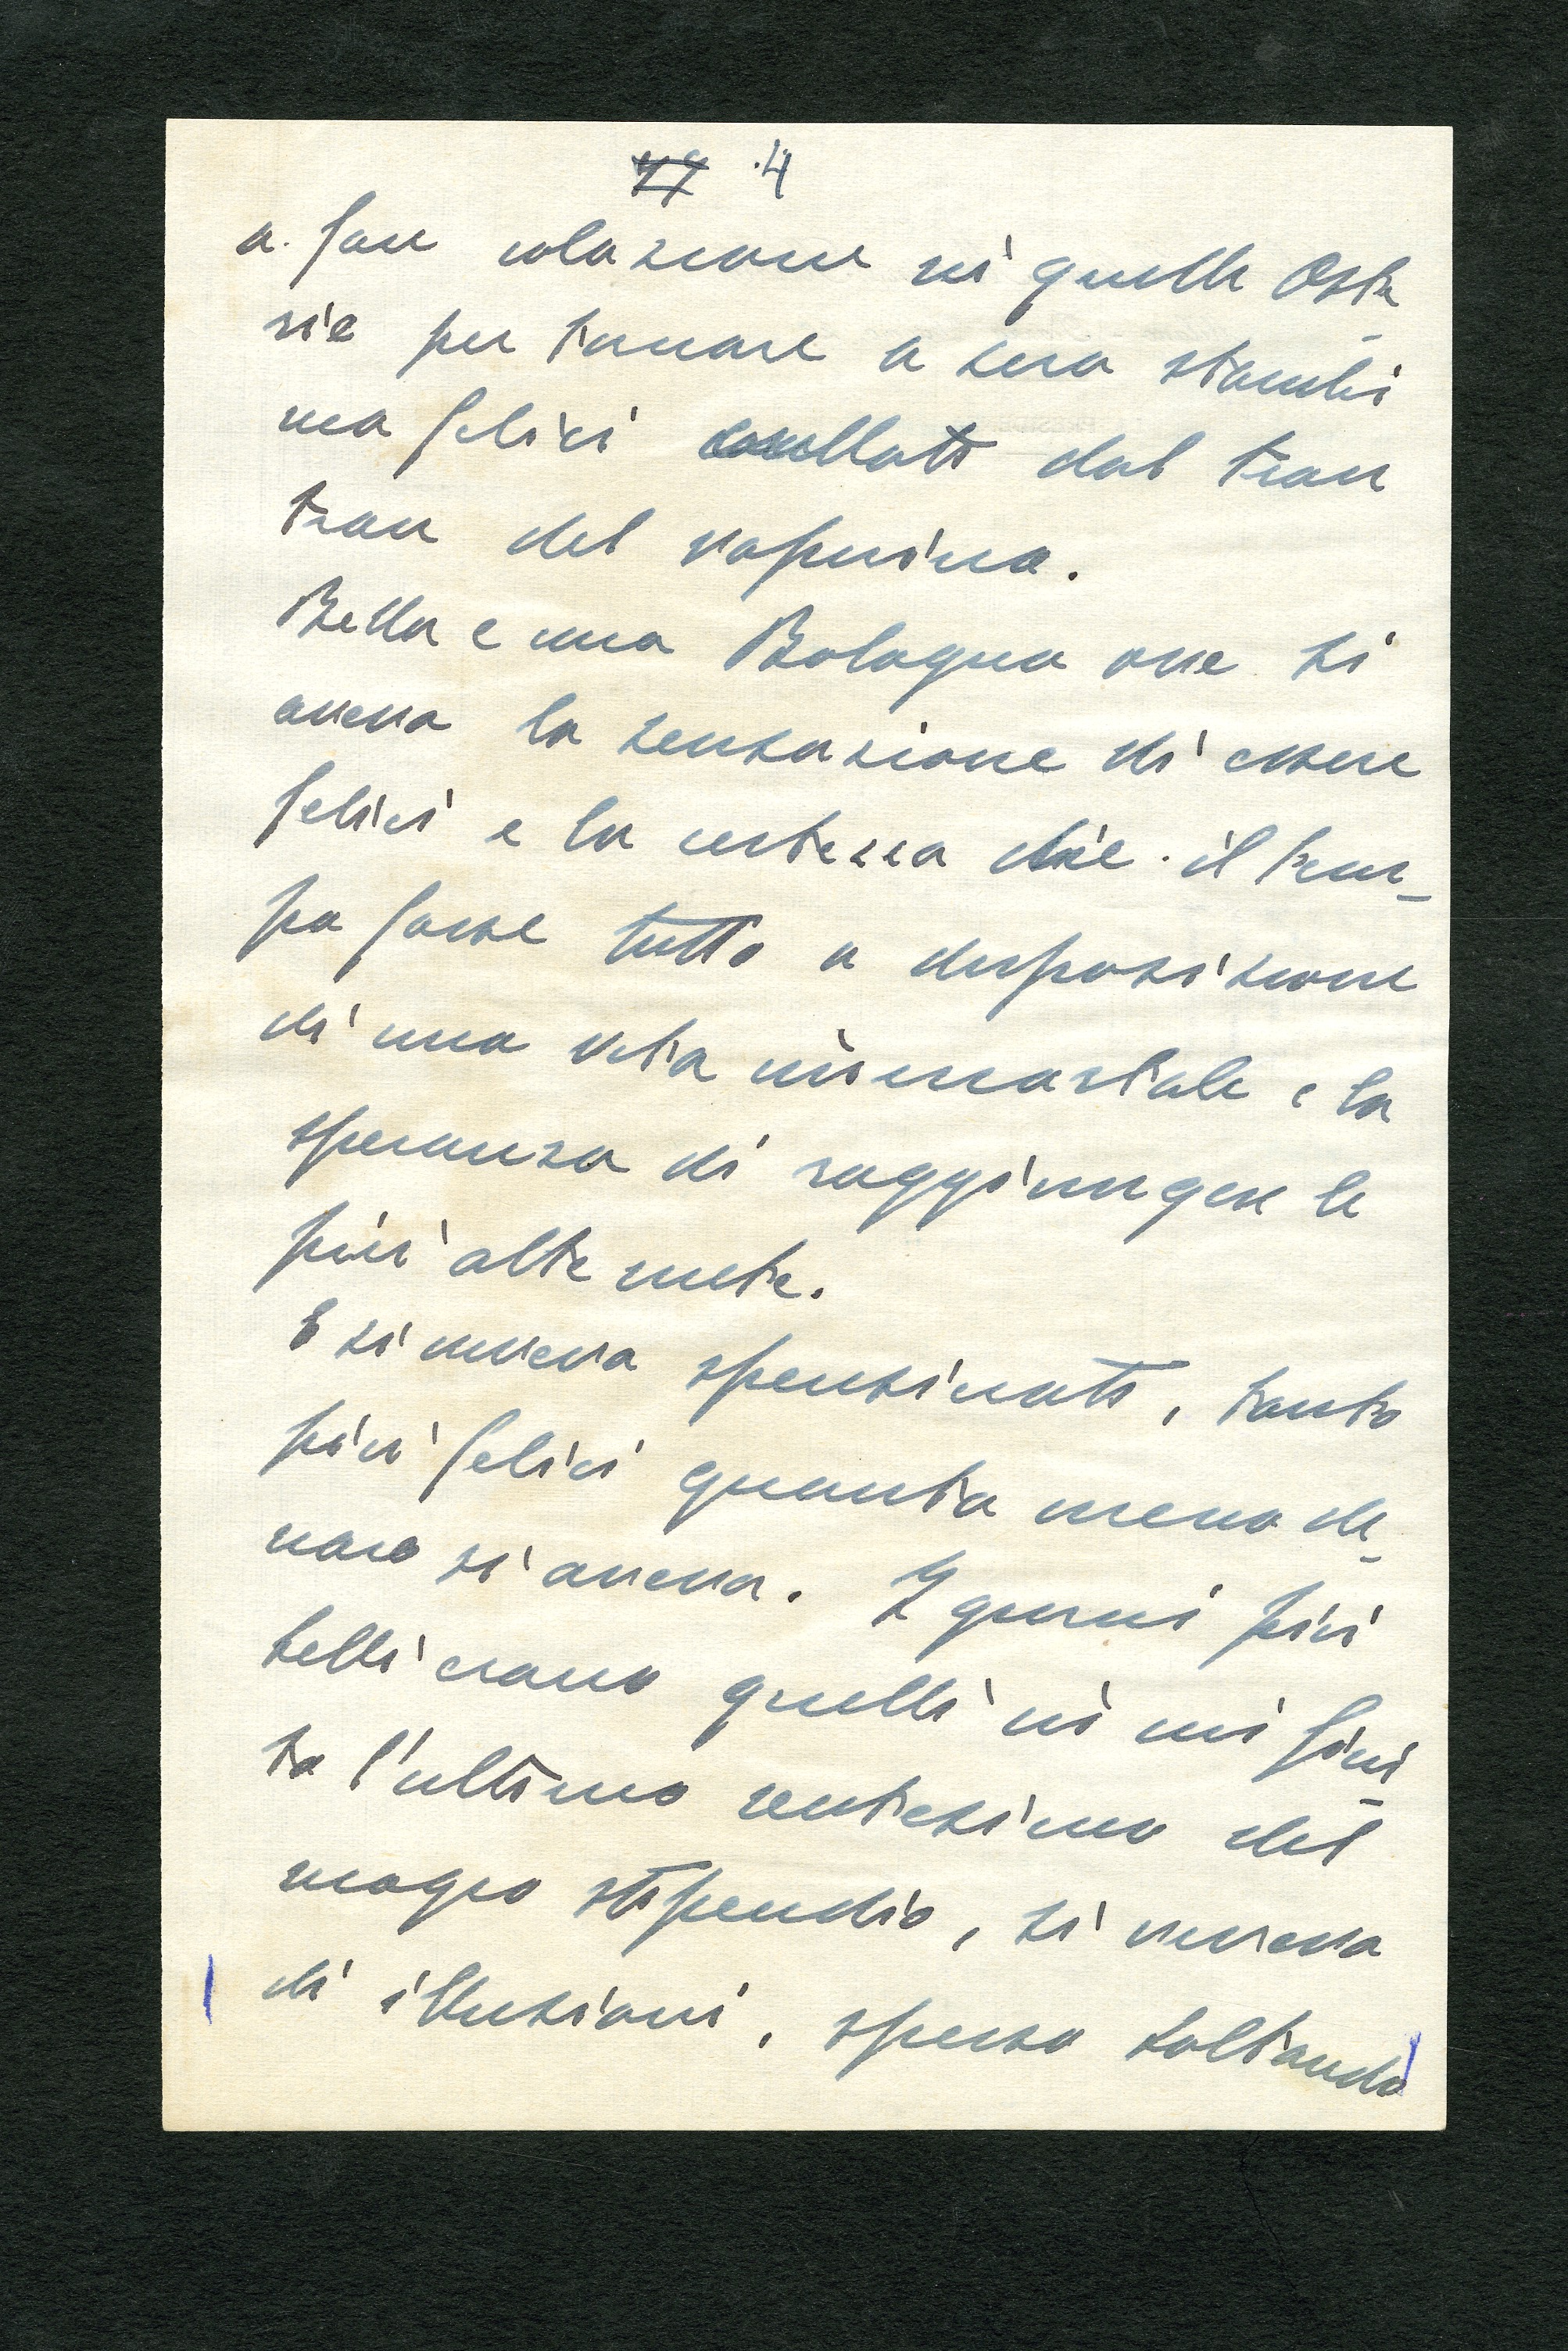 4
a far colazione in quelle Oste-
rie per tornare a sera stanchi
ma felici cullati dal tran
tran del vaporino.
Bella e cara Bologna ove si
aveva la sensazione di essere
felici e la certezza che il tem-
po fosse tutto a disposizione
di una vita immortale e la
speranza di raggiungere le
più alte mete.
E si viveva spensierati, tanto
più felici quanto meno de-
naro si aveva. I giorni più
belli erano quelli in cui fini-
to l'ultimo centesimo del
magro stipendio, si viveva
di illusioni, spesso saltando